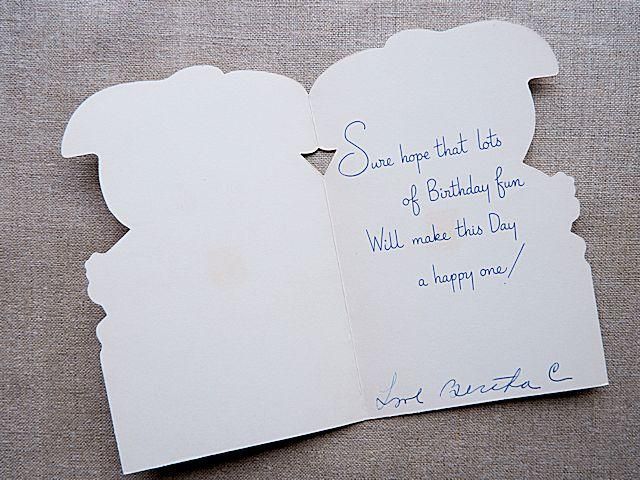 Sure hope that lots
of Birthday fun
Will make this Day
a happy one!
Love Bertha C